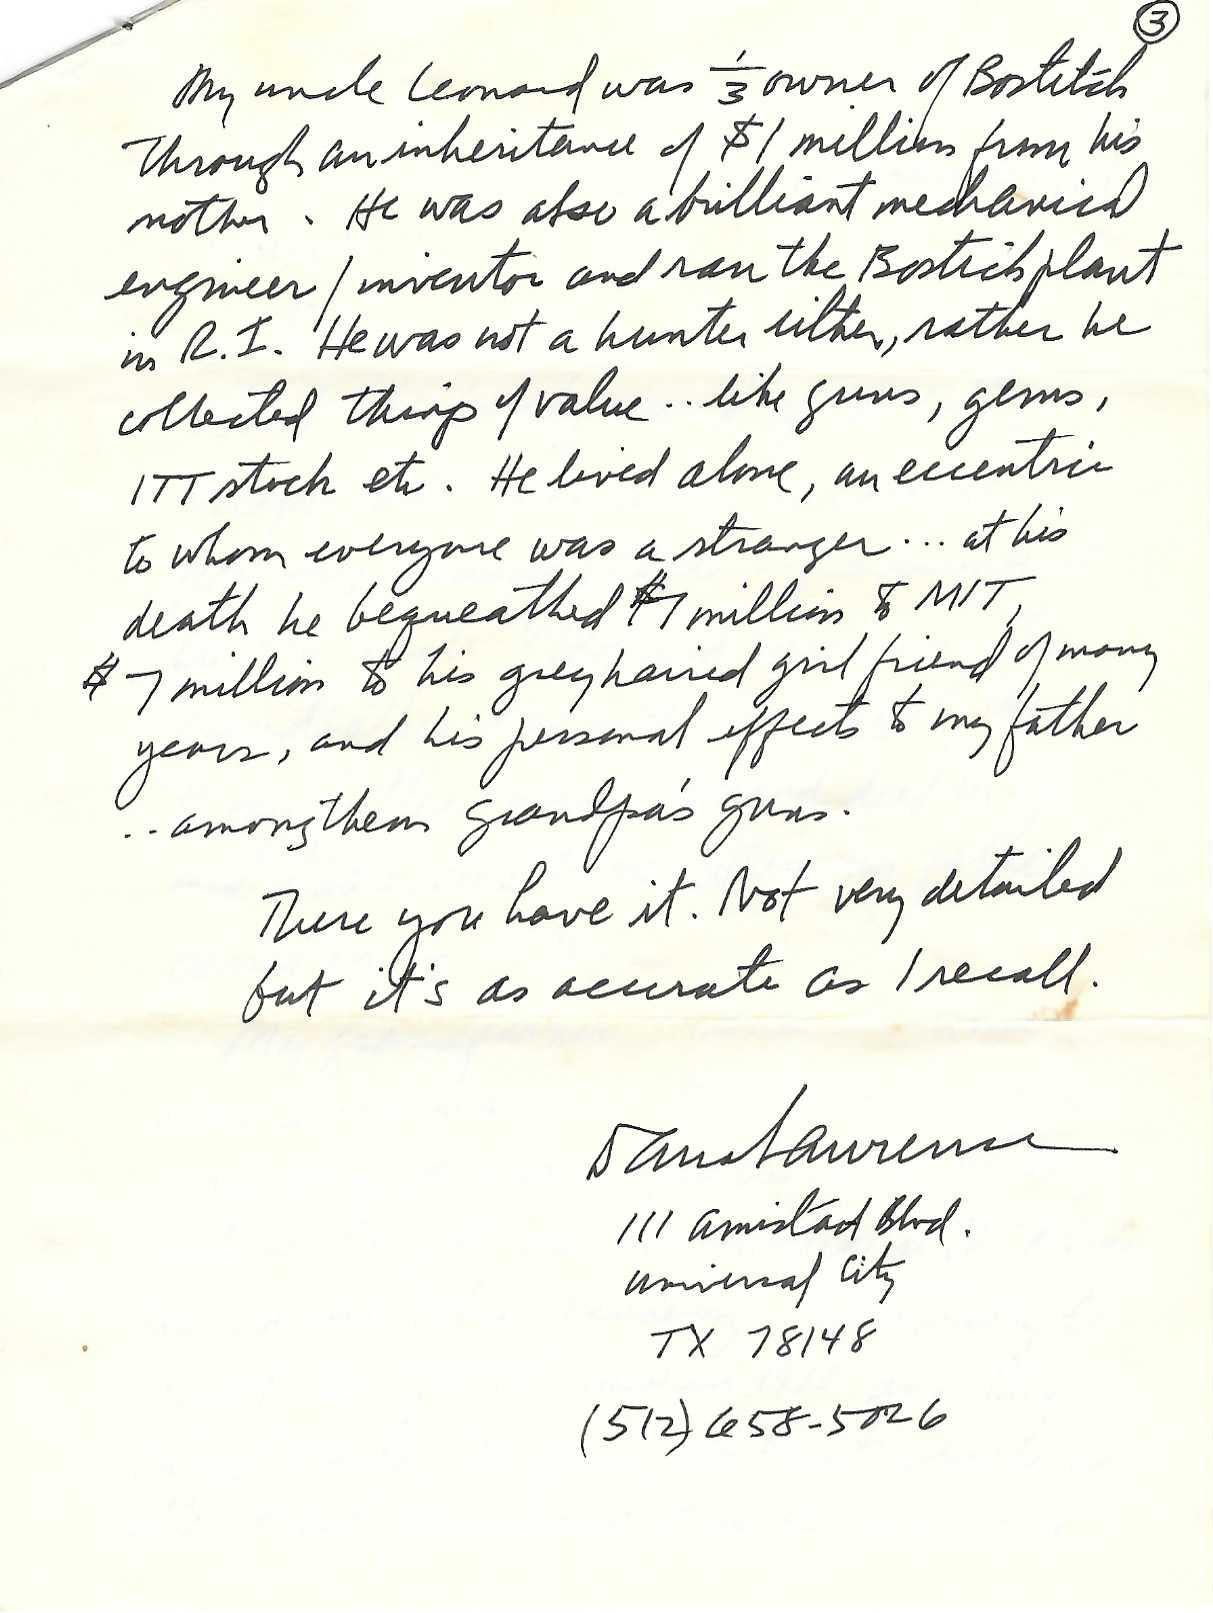 3
My uncle Leonard was 1/3 owner of Bostitch
through an inheritance of $1 million from his
mother. He was also a brilliant mechanical
engineer / inventor and ran the Bostich plant
in R.I. He was not a hunter either, rather he
collected things of value .. like guns, gems,
ITT stock etc. He lived alone, an eccentric
to whom everyone was a stranger ... at his
death he bequeathed $7 million to MIT,
$7 million to his grey haired girl friend of many
years, and his personal effects to my father
.. among them Grandpa's guns.
There you have it. Not very detailed
but it's as accurate as I recall.
Dana Lawrence
111 Amistad Blvd.
Universal City
TX 78148
(512) 658-5026